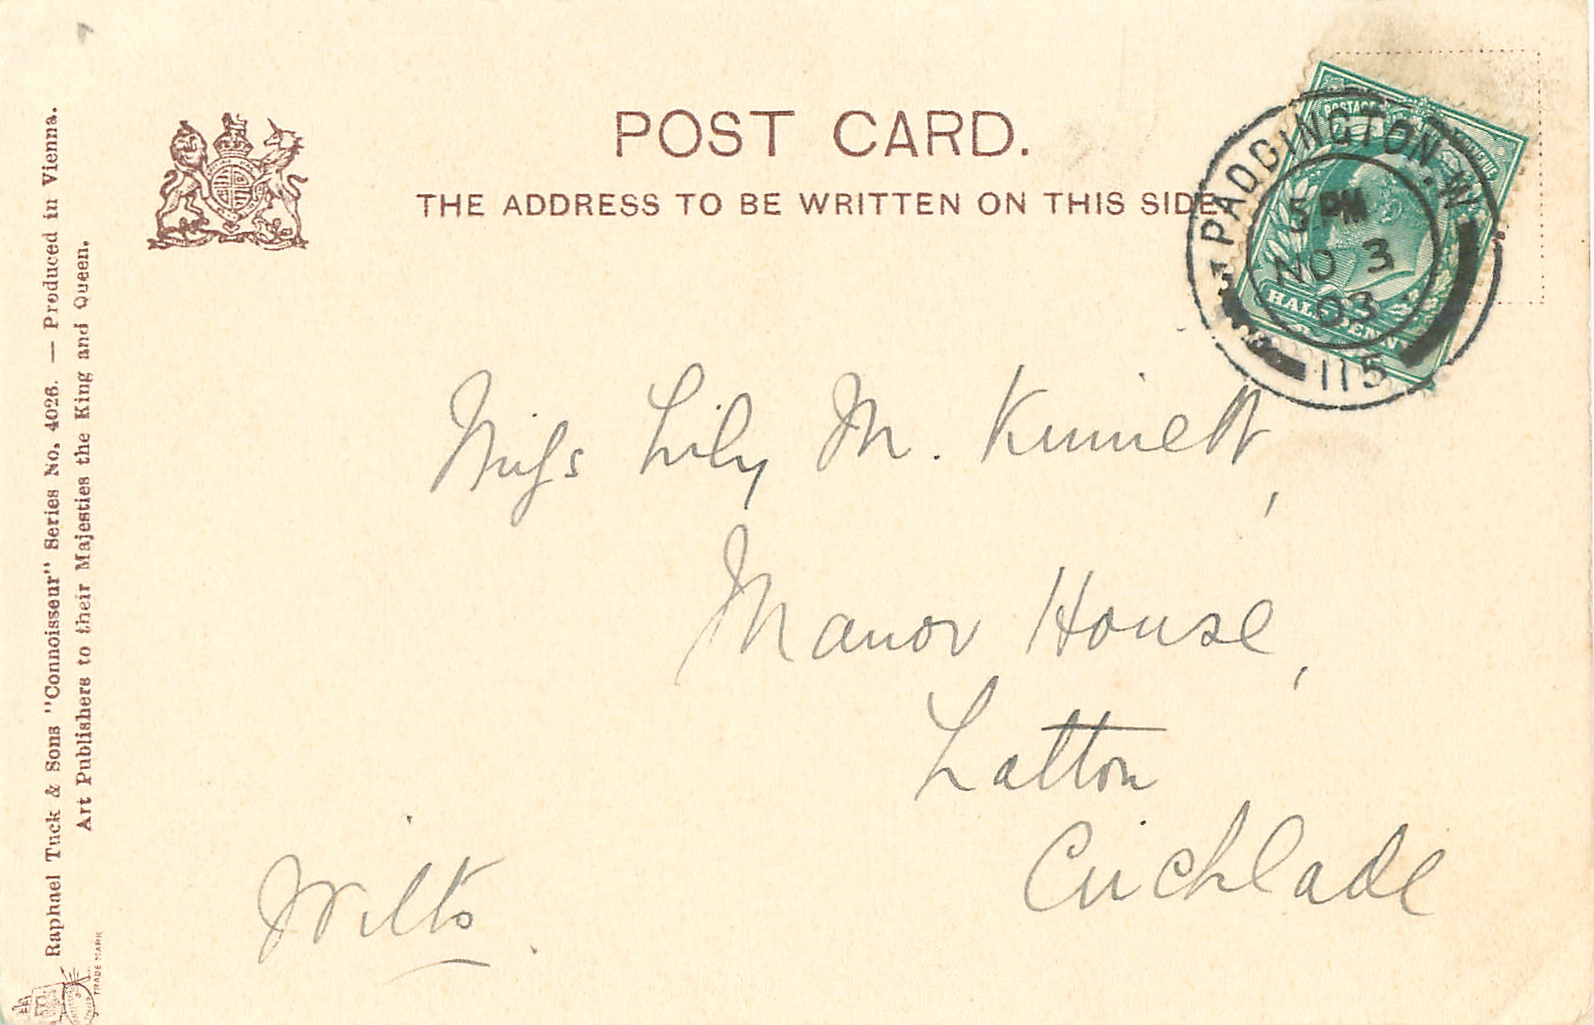 POST CARD.
THE ADDRESS TO BE WRITTEN ON THIS SIDE
POSTAGE REVENUE
PADDINGTON. W
5 PM
NO 3
03
115
HALFPENNY
Miss Lily M. Kinnett,
Manor House,
Latton
Cricklade
Wilts.
Raphael Tuck & Sons "Connoisseur" Series No. 4026. — Produced in Vienna.
Art Publishers to their Majesties the King and Queen.
TRADE MARK